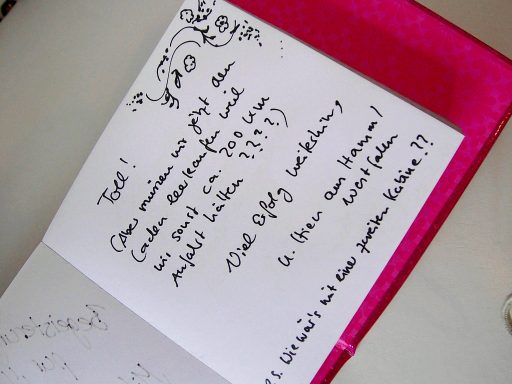 Toll!
(Aber müssen wir jetzt den
Laden leerkaufen weil
wir sonst ca. 200 km
Anfahrt hätten ????)
Viel Erfolg weiterhin,
aus Hamm/
Westfalen
P.S. Wie wär's mit einer zweiten Kabine??